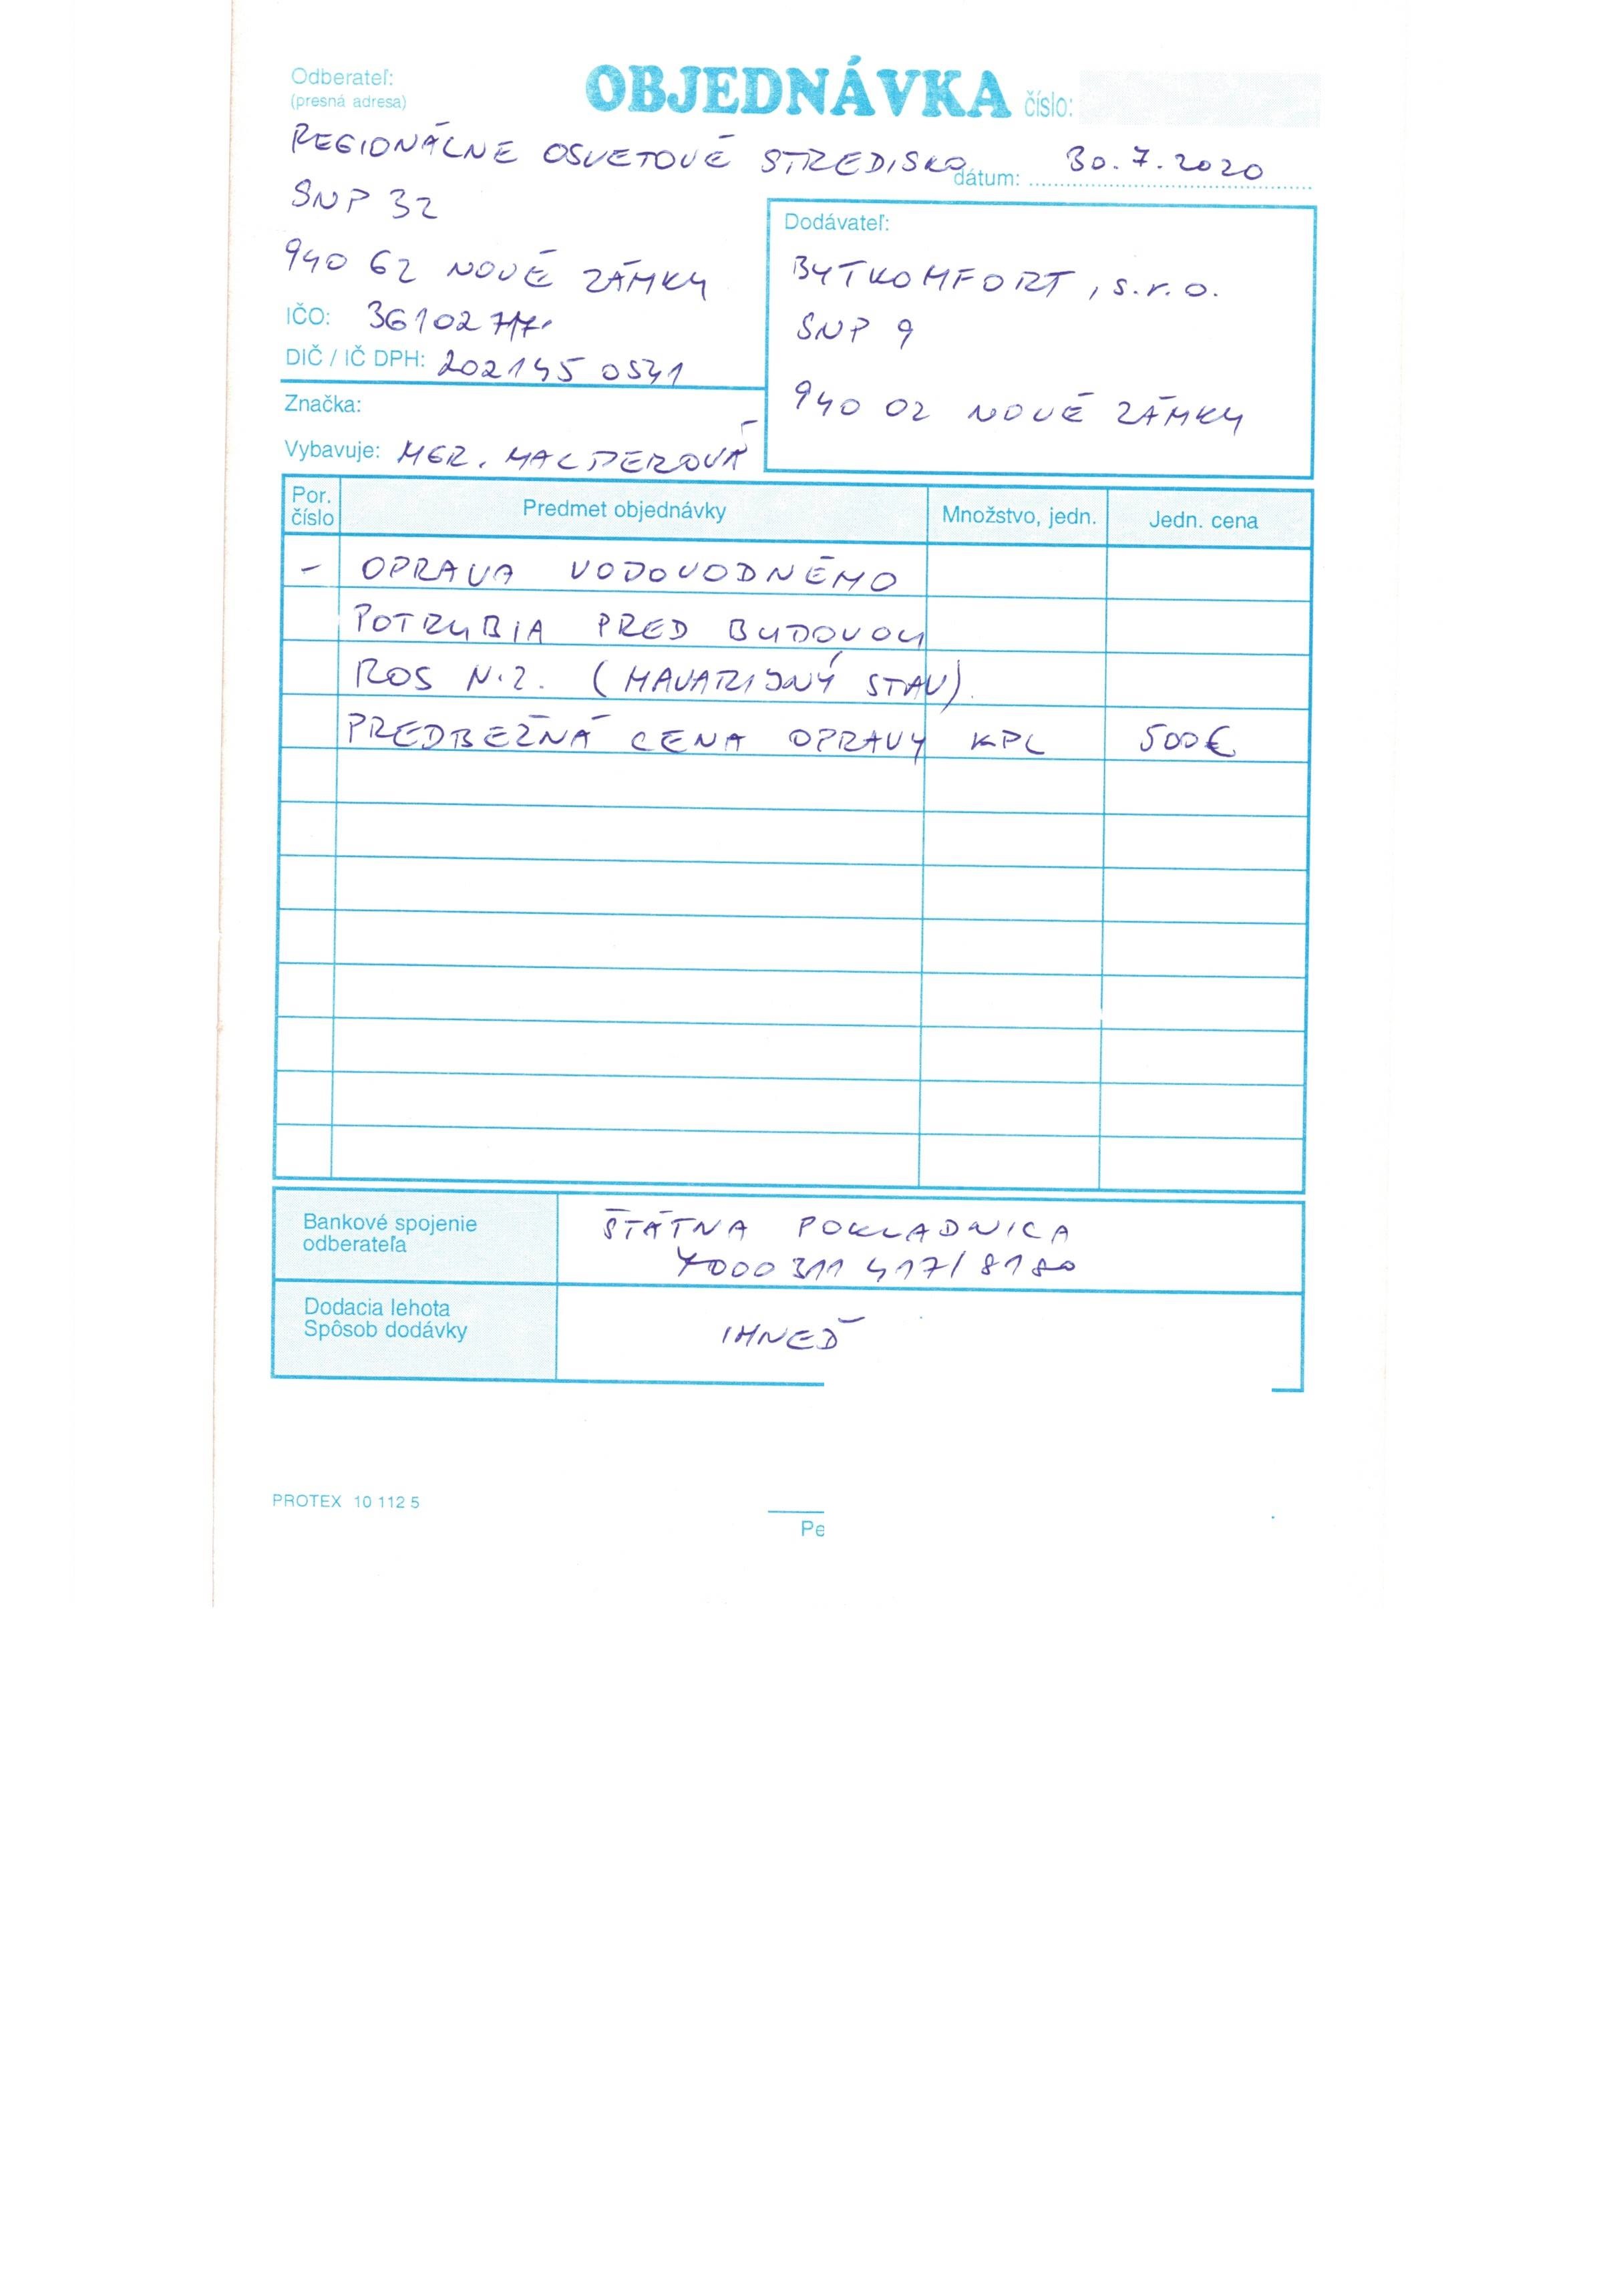 Odberateľ:
(presná adresa)
OBJEDNÁVKA číslo:
REGIONÁLNE OSVETOVÉ STREDISKO
dátum: 30.7.2020
SNP 32
940 62 NOVÉ ZÁMKY
IČO: 36102717
DIČ / IČ DPH: 202145 0541
Značka:
Vybavuje: MGR.
Dodávateľ:
BYTKOMFORT, s.r.o.
SNP 9
940 02 NOVÉ ZÁMKY
Por. číslo Predmet objednávky Množstvo, jedn. Jedn. cena
- OPRAVA VODOVODNÉHO
POTRUBIA PRED BUDOVOU
ROS N.Z. (HAVARIJNÝ STAV).
PREDBEŽNÁ CENA OPRAVY KPL 500€
Bankové spojenie
odberateľa
ŠTÁTNA POKLADNICA
7000 311 417/8180
Dodacia lehota
Spôsob dodávky
IHNEĎ
PROTEX 10 112 5
Pe